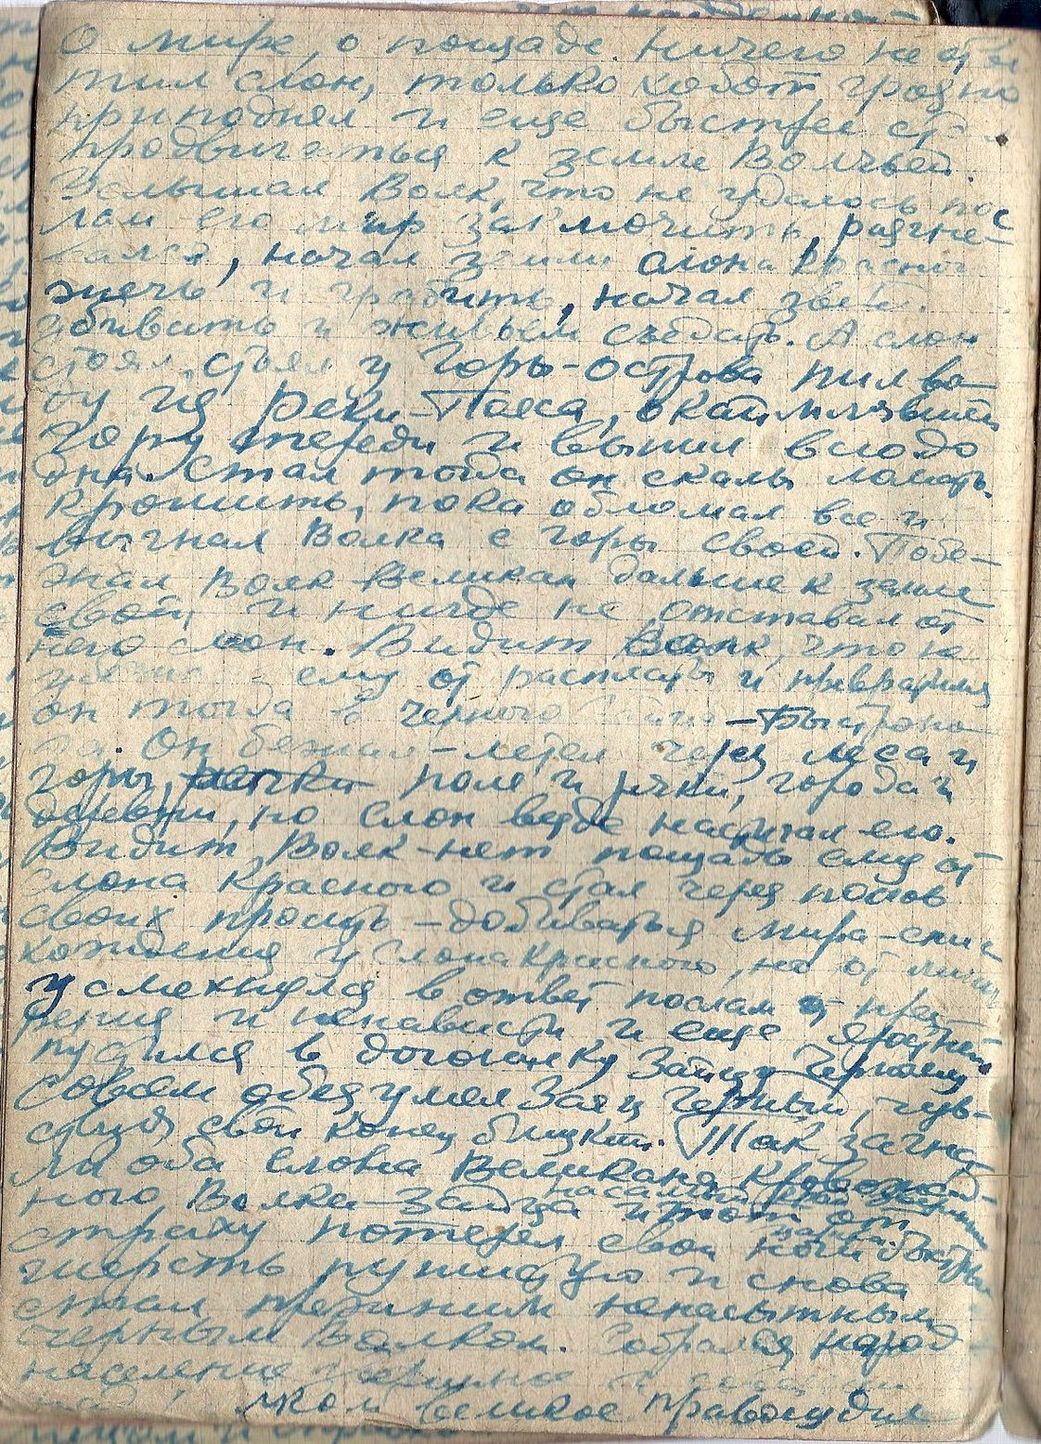 о мире, о пощаде. Ничего не отве
тил слон, только хобот грозно
приподнял и еще быстрее ст
продвигаться к земле Волчьей.
Услышал Волк, что не удалось пос
лам его мир заключить, разгне-
вался, начал земли слона Красного
жечь и грабить, начал зве
убивать и живьем съедать. А слон
стоял, стоял у Горы-острова пил во-
ду из реки-Пояса, окаймлявшей
гору спереди и выпил всю до
дна. Стал тогда он скалы ломать.
крошить, пока обломал все и
выгнал Волка с горы своей. Побе-
жал Волк Великан дальше к земле
своей и нигде не отставал от
него слон. Видит Волк, что не
ему от расплаты и превратился
он тогда в черного Зайца-Быстроно
га. Он бежал-летел через леса и
горы, поле и речки, города и
деревни, но Слон везде настигал его.
Видит Волк-нет пощады ему от
Слона Красного и стал через послов
своих просить-добиваться мира-снис
хождения у Слона Красного, но от
усмехнулся в ответ послам през-
рения и ненависти и еще яростней
пустился в догонялку Зайцу Черному.
Совсем обезумел Заяц Черный, чув-
ствуя свой конец близкий. Так загна-
ли оба слона Великана Кровожад-
ного Волка-Зайца и тот от
страху потерял свои ноги быстрые
шерсть пушистую и снова
стал прежним ненасытным
черным Волком. Собрался народ
население
великое Правосудие